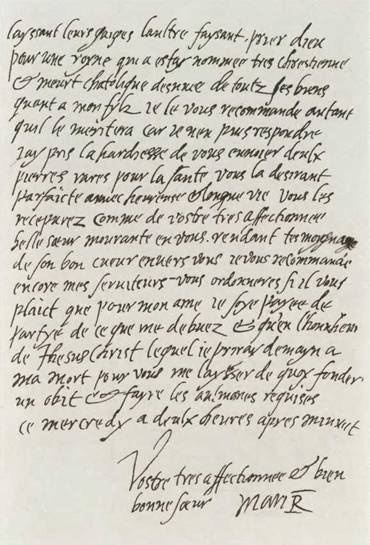 layssant leurs gaiges laultre faysant prier dieu
pour une royne qui a estay nommee tres chrestienne
& meurt chatolique desnuee de toutz ses biens
quant a mon fylz ie le vous recommande autant
quil le meritera car ie nen puis respondre
Jay pris la hardiesse de vous enuoier deulx
pierres rares pour la sante vous la desirant
parfaicte auuec heureuse & longue vie vous les
recepvrez comme de vostre tres affectionnee
belle sœur mourante en vous rendant tesmoygnage
de son bon cueur enuers vous ie vous recommande
encore mes seruiteurs vous ordonneres si il vous
plaict que pour mon ame ie soye payee de
partye de ce que me debuez & quen lhonneur
de Jhesus Christ lequel ie priray demayn a
ma mort pour vous me laysser de quoy fonder
un obit & fayre les aulmones requises
ce mercredy a deulx heures apres minuit
Vostre tres affectionnee & bien
bonne sœur MariR